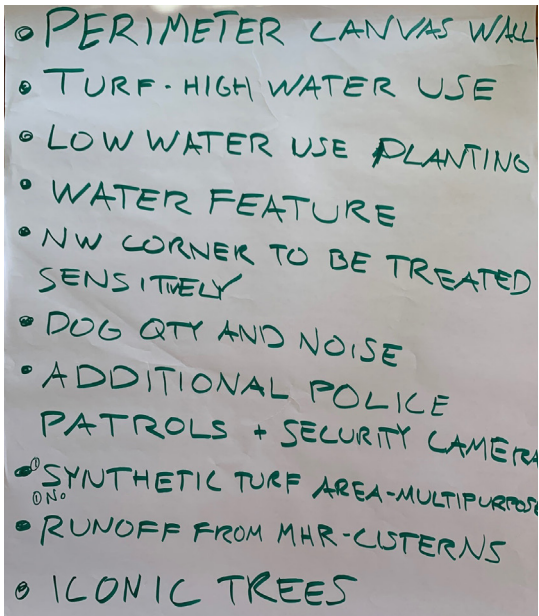 • PERIMETER CANVAS WALL
• TURF-HIGH WATER USE
• LOW WATER USE PLANTING
• WATER FEATURE
• NW CORNER TO BE TREATED
SENSITIVELY
• DOG QTY AND NOISE
• ADDITIONAL POLICE
PATROLS + SECURITY CAMERA
• SYNTHETIC TURF AREA-MULTIPURPOSE
NO
• RUNOFF FROM MHR-CISTERNS
• ICONIC TREES